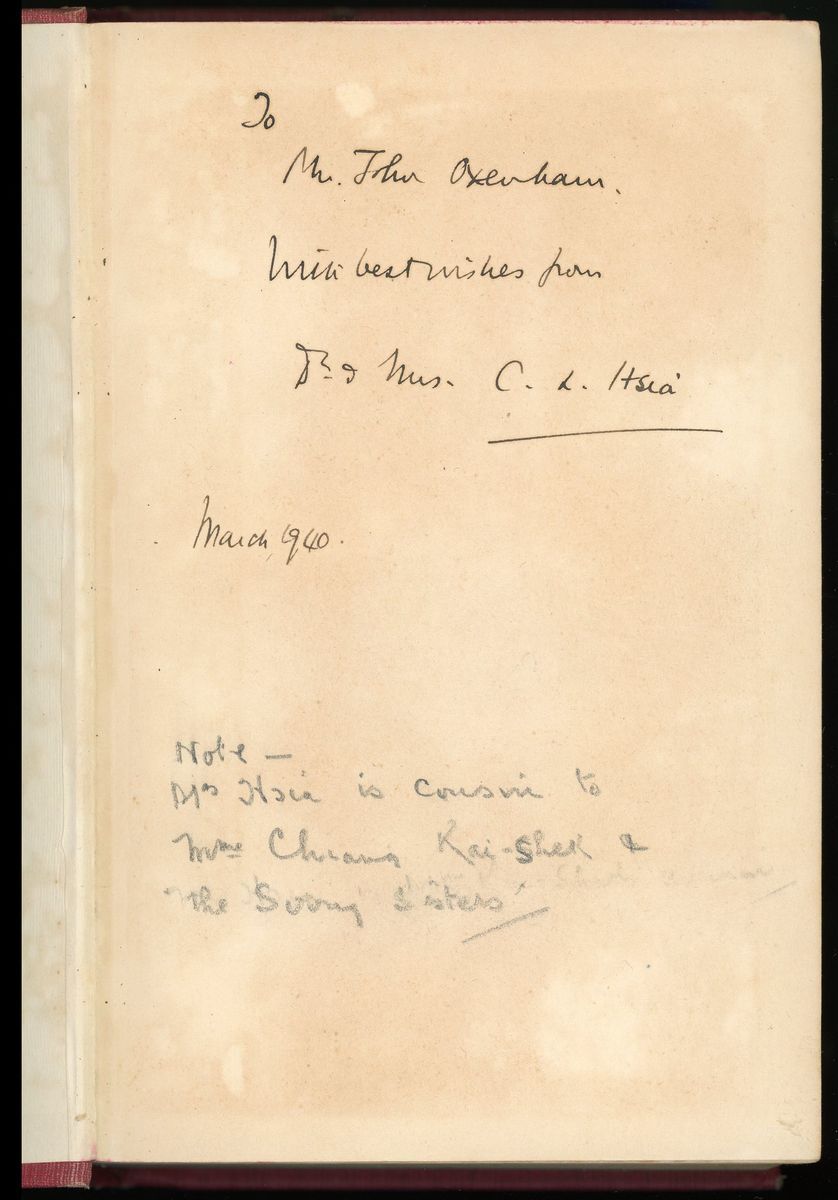 To
Mr. John Oxenham.
With best wishes from
Dr. & Mrs. C. L. Hsia
March, 1940.
Note —
Mrs Hsia is cousin to
Mme Chiang Kai-Shek &
the Soong Sisters